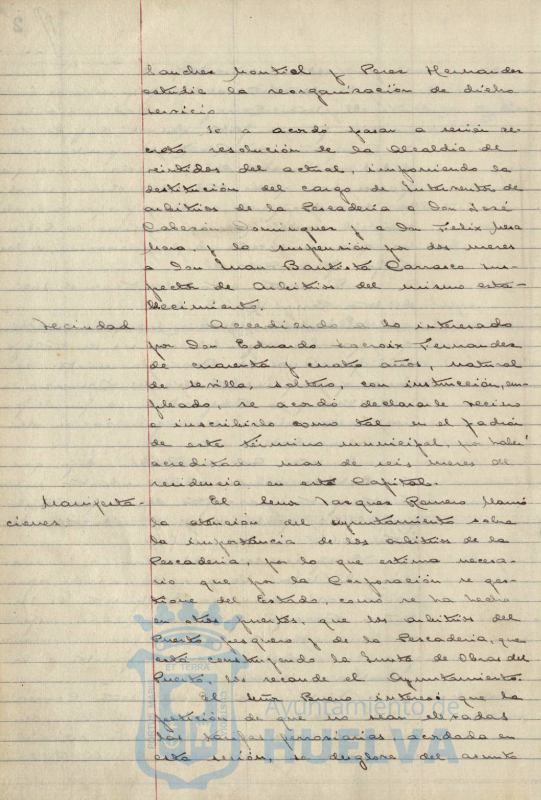 Sanchez Montiel y Perez Hernandez
estudie la reorganización de dicho
servicio.
Se a acordó pasar a sesión se-
creta resolución de la Alcaldia de
veintidos del actual, imponiendo la
destitución del cargo de Interventor de
arbitrios de la Pescaderia a Don José
Cabezón Dominguez y a Don Felix Mesa
Mora, y la suspensión por dos meses
a Don Juan Bautista Carrasco Ins-
pector de Arbitrios del mismo esta-
blecimiento.
Vecindad
Accediendo a lo interesado
por Don Eduardo Lacroix Fernandez
de cuarenta y cuatro años, natural
de Sevilla, soltero, con instrucción, em-
pleado, se acordó declararle vecino
e inscribirlo como tal en el padrón
de este término municipal, por haber
acreditado mas de seis meses de
residencia en esta Capital.
Manifesta-
ciones.
El Señor Vazquez Romero llamó
la atención del Ayuntamiento sobre
la importancia de los arbitrios de la
Pescaderia, por lo que estima necesa-
rio que por la Corporación se ges-
tione del Estado, como se ha hecho
en otros puertos, que los arbitrios del
Puerto pesquero y de la Pescaderia, que
está construyendo la Junta de Obras del
Puerto, los recaude el Ayuntamiento.
El Señor Bueno interesó que la
petición de que no sean elevadas
las tarifas ferroviarias, acordada en
esta sesión, se desglose del asunto
Ayuntamiento de
HUELVA